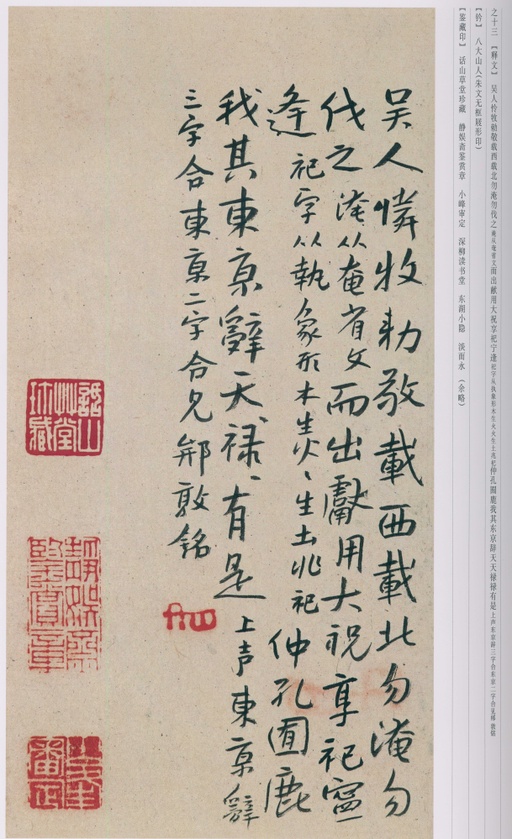 之十三 【释文】 吴人怜牧勑敬载西载北勿淹勿伐之淹从奄省文而出献用大祝享祀宁逢祀字从执象形木生火火生土兆祀仲孔囿鹿我其东京辞天天禄禄有是上声东京辞三字合东京二字合兄郱敦铭
【钤】 八大山人(朱文无框屐形印)
【鉴藏印】 话山草堂珍藏 静娱斋鉴赏章 小峰审定 深柳读书堂 东湖小隐 淡而永 (余略)
吴人憐牧勑敬載西載北勿淹勿
伐之淹从奄省文而出獻用大祝享祀寧
逢祀字从執象形木生火〻生土兆祀仲孔囿鹿
我其東京辭天〻禄〻有是上声東京辭
三字合東京二字合兄郱敦銘
話山草堂珍藏
静娱齋鑒賞章